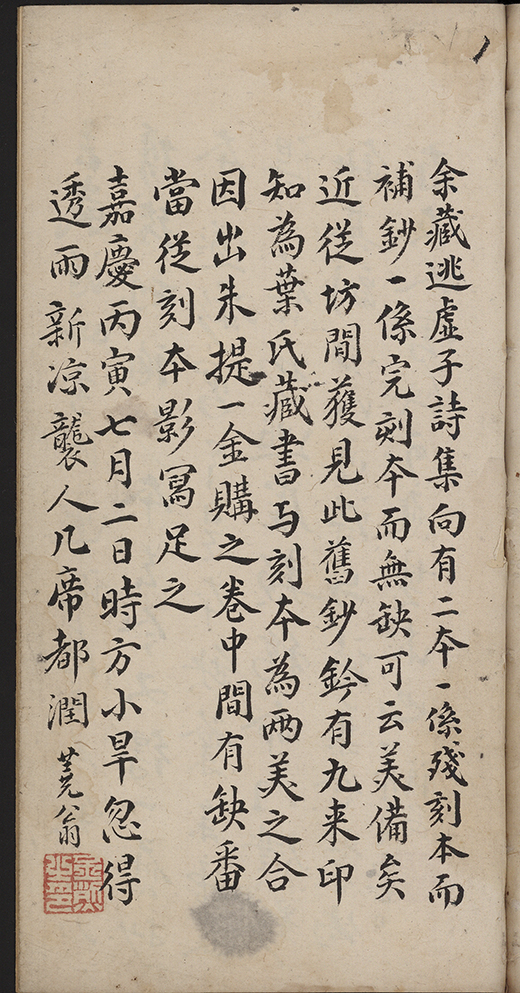 余藏逃虛子詩集向有二本一係殘刻本而
補鈔一係完刻本而無缺可云美備矣
近從坊間獲見此舊鈔鈐有九来印
知為葉氏藏書与刻本為兩美之合
因出朱提一金購之卷中間有缺番
當從刻本影寫足之
嘉慶丙寅七月二日時方小旱忽得
透雨新凉襲人几席都潤 蕘翁